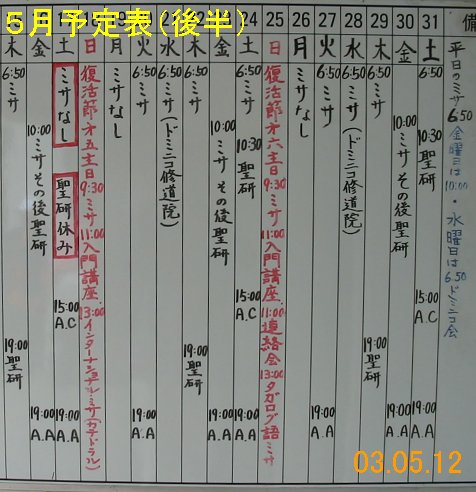 5月予定表(後半)
24 25 26 27 28 29 30 31 備
木 金 土 日 月 火 水 木 金 土 日 月 火 水 木 金 土
6:50 ミサ
19:00 聖研
10:00 ミサ その後聖研
19:00 A.A
ミサなし
聖研休み
15:00 A.C
19:00 A.A
復活節オ五主日 9:30 ミサ 11:00 入門講座 13:00 インターナショナルミサ(カテドラル)
ミサなし
6:50 ミサ
19:00 A.A
6:50 ミサ(ドミニコ修道院)
6:50 ミサ
19:00 聖研
10:00 ミサ その後聖研
19:00 A.A
6:50 ミサ
10:30 聖研
15:00 A.C
19:00 A.A
復活節オ六主日 9:30 ミサ 11:00 入門講座 11:00 連絡会 13:00 タガログ語ミサ
ミサなし
6:50 ミサ
19:00 A.A
6:50 ミサ(ドミニコ修道院)
6:50 ミサ
19:00 聖研
10:00 ミサ その後聖研
19:00 A.A
6:50 ミサ
10:30 聖研
15:00 A.C
19:00 A.A
平日のミサ 6:50
金曜日は 10:00・水曜日は 6:50 ドミニコ会
03.05.12